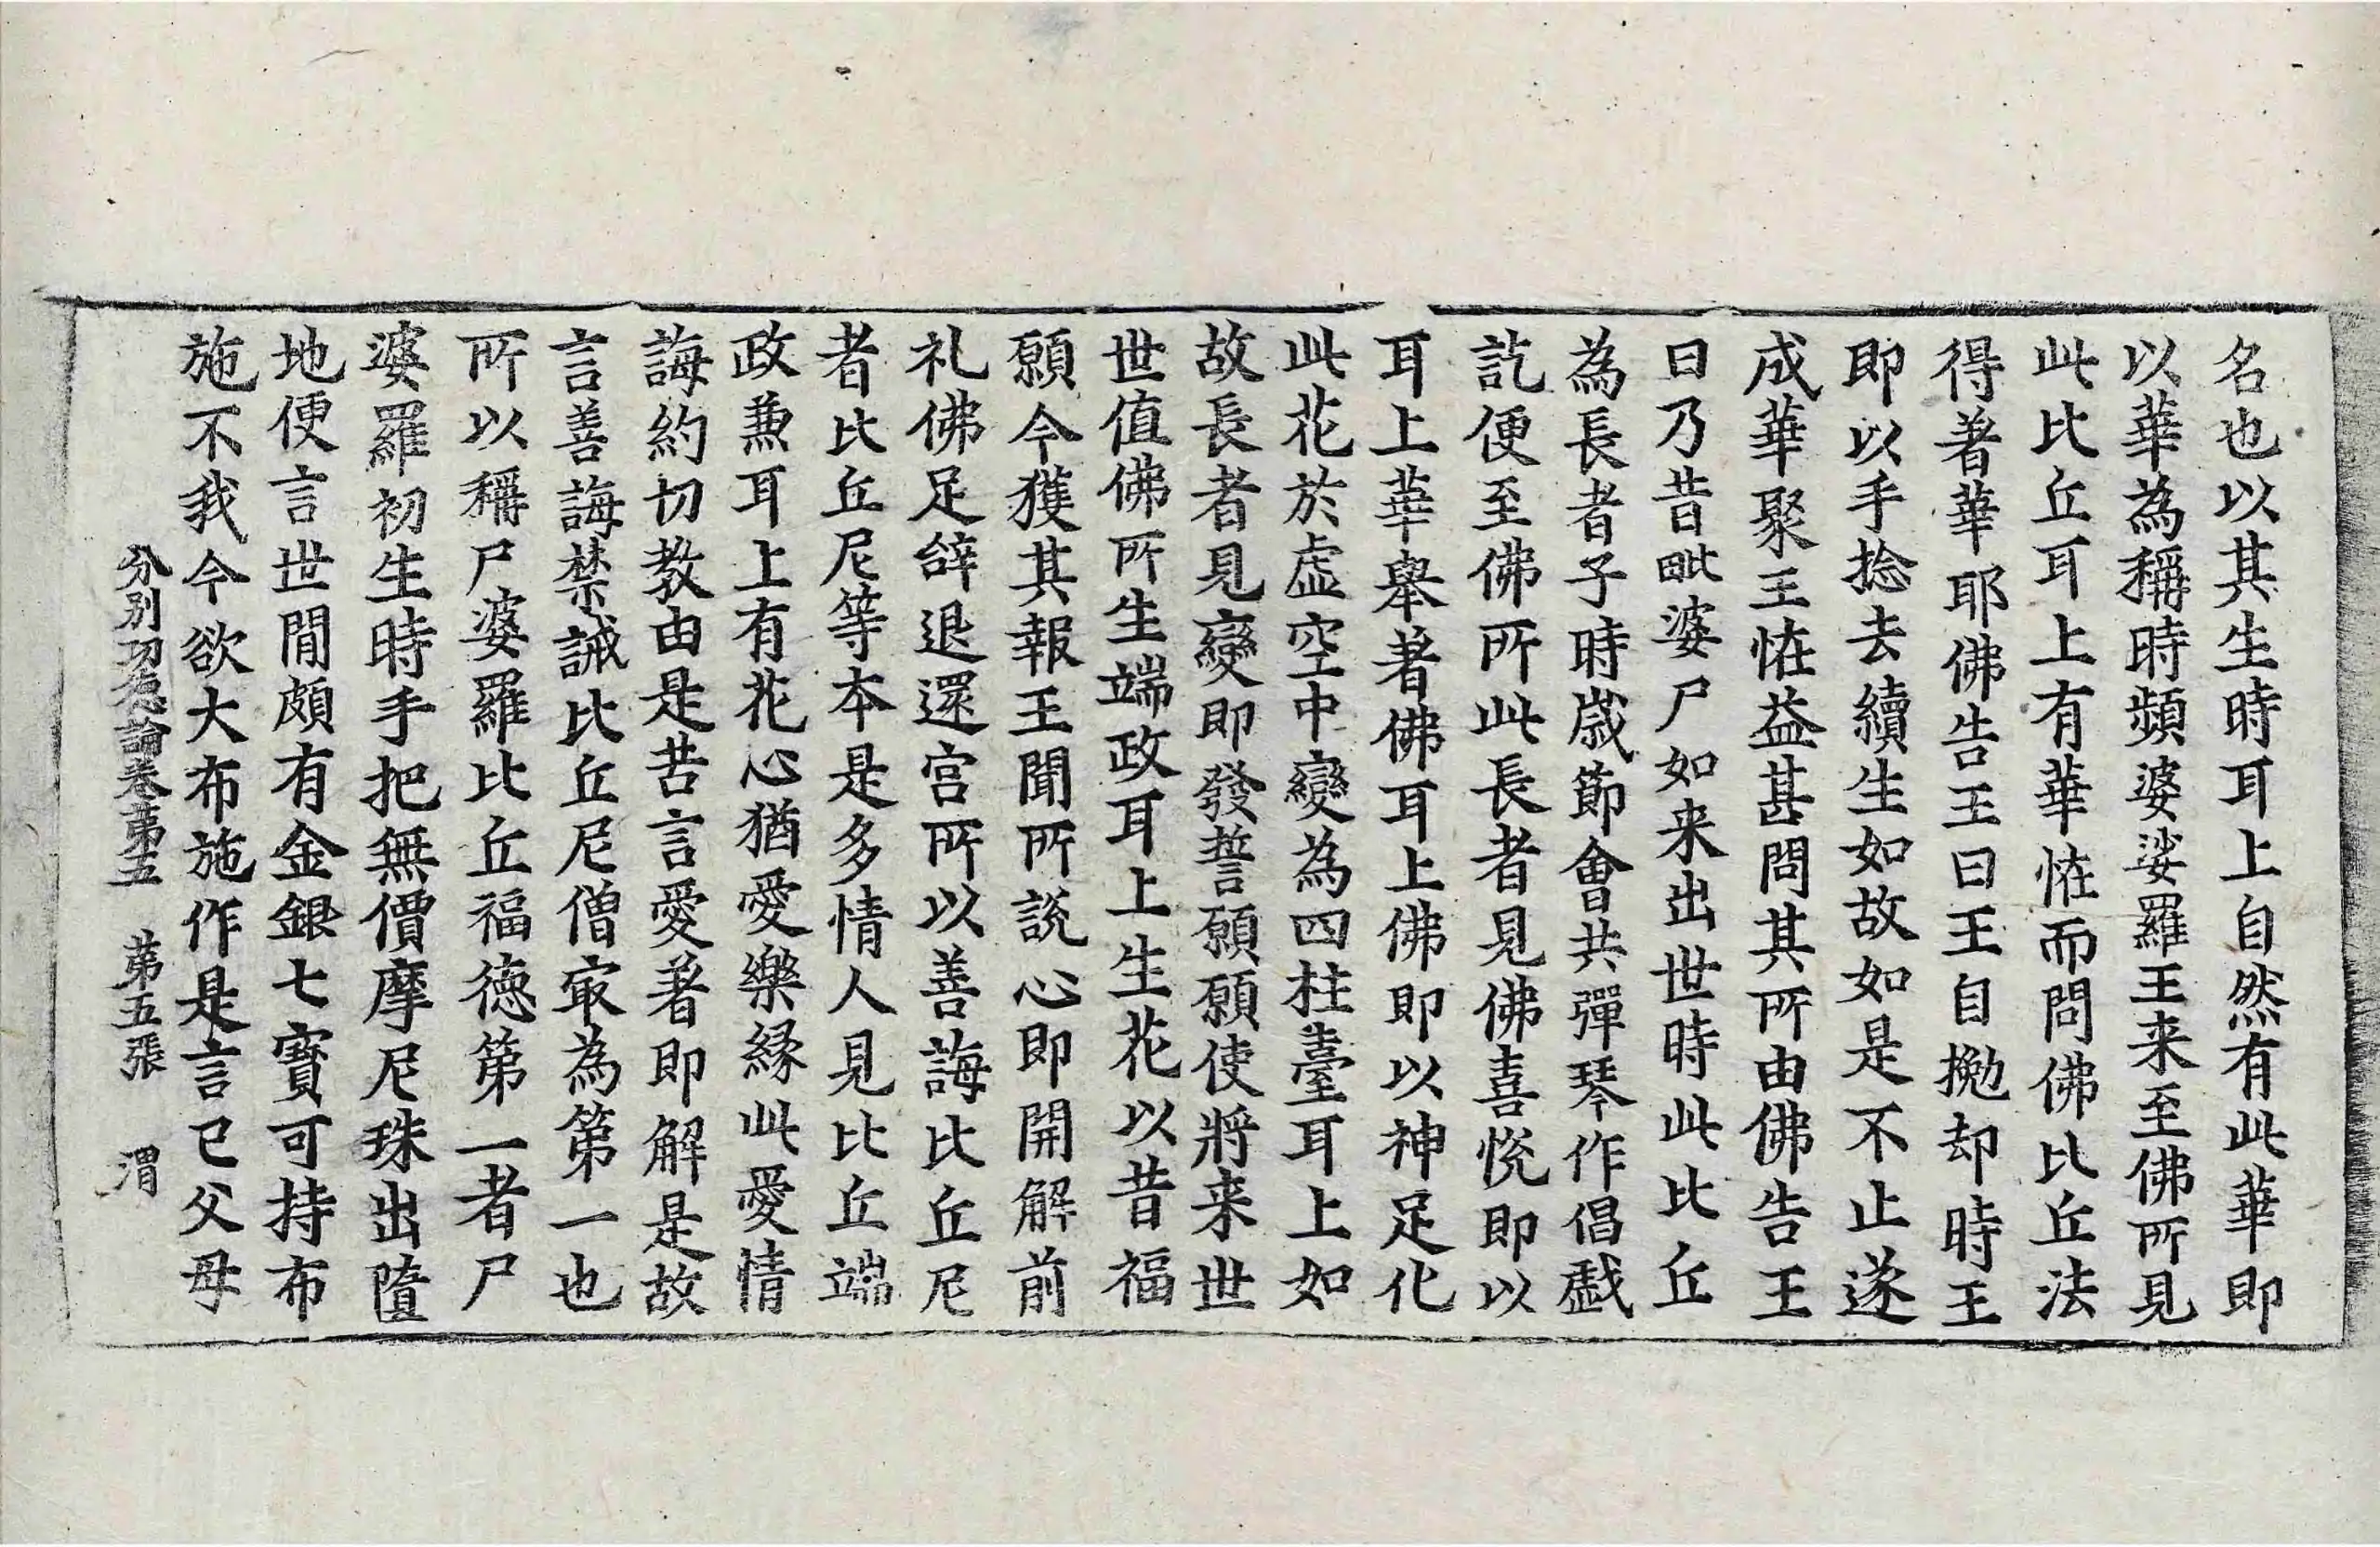 名也以其生時耳上自然有此華即
以華為稱時頻婆娑羅王来至佛所見
此比丘耳上有華恠而問佛比丘法
得著華耶佛告王曰王自挽却時王
即以手捻去續生如故如是不止遂
成華聚王恠益甚問其所由佛告王
曰乃昔毗婆尸如来出世時此比丘
為長者子時歳節會共彈琴作倡戱
訖便至佛所此長者見佛喜悅即以
耳上華舉著佛耳上佛即以神足化
此花於虛空中變為四柱臺耳上如
故長者見變即發誓願願使將来世
世值佛所生端政耳上生花以昔福
願今獲其報王聞所說心即開解前
礼佛足辝退還宮所以善誨比丘尼
者比丘尼等本是多情人見比丘端
政兼耳上有花心猶愛樂緣此愛情
誨約切教由是苦言愛著即解是故
言善誨禁誡比丘尼僧冣為第一也
所以稱尸婆羅比丘福德第一者尸
婆羅初生時手把無價摩尼珠出墮
地便言世閒頗有金銀七寶可持布
施不我今欲大布施作是言已父母
分別功德論卷苐五　苐五張　渭